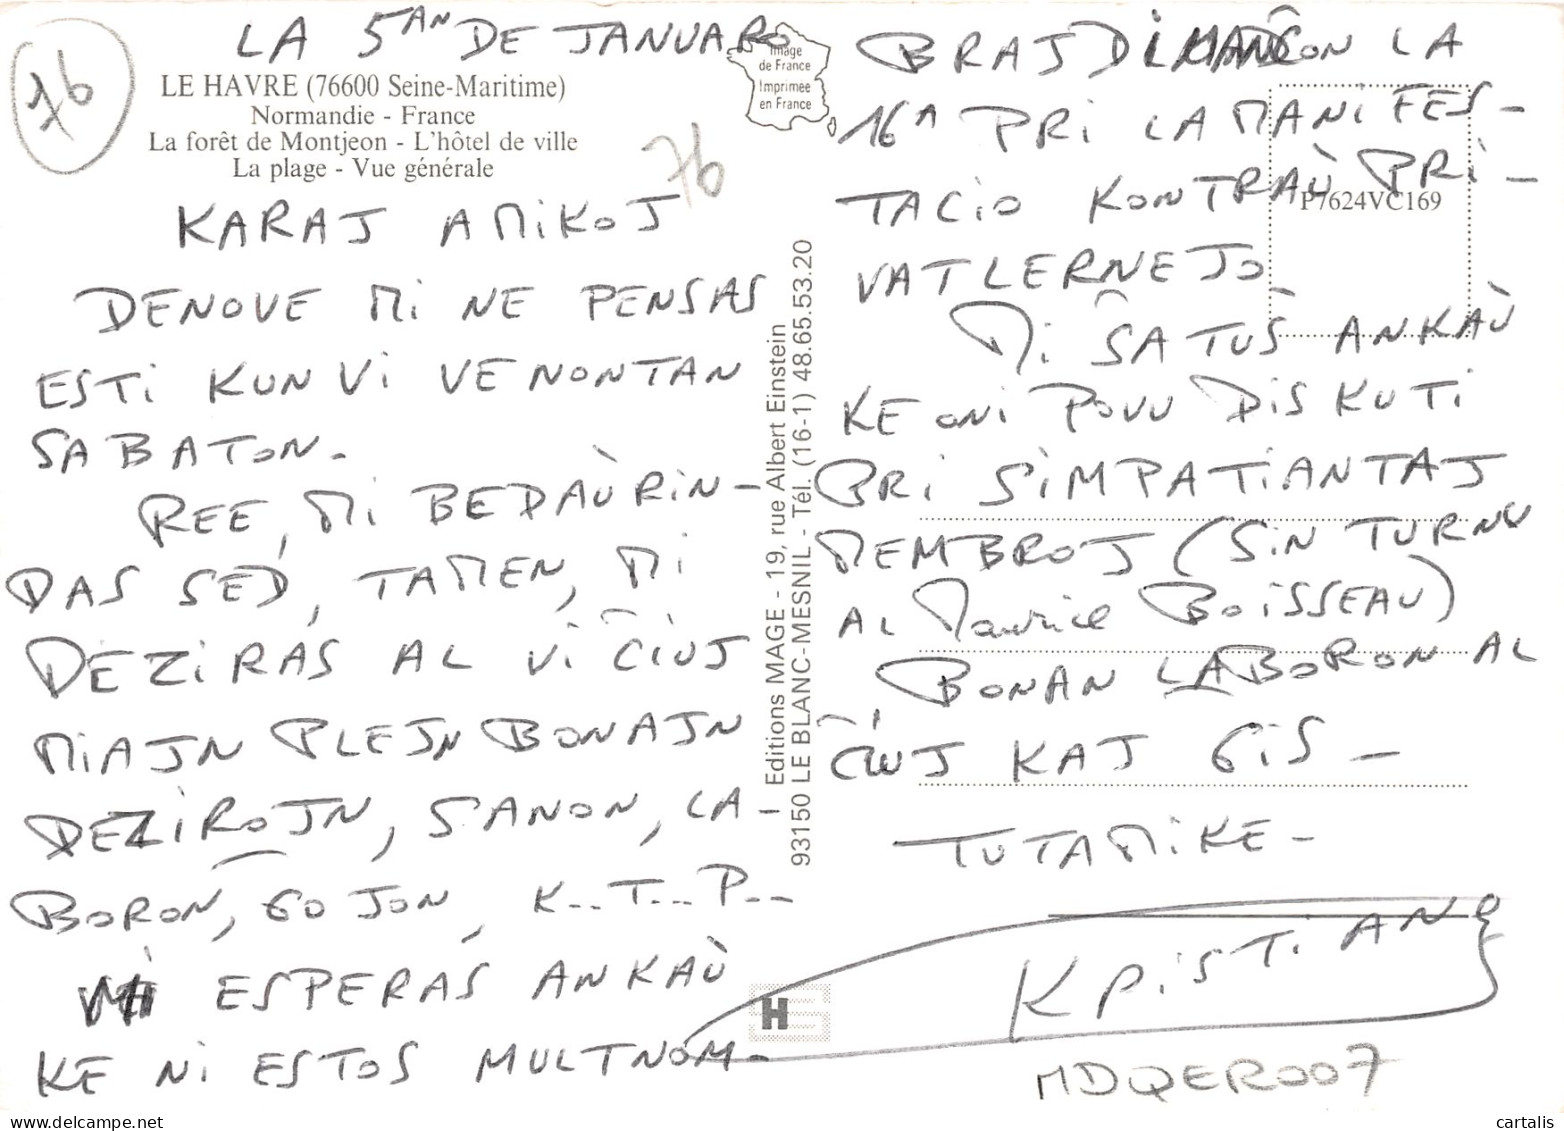 76
LA 5AN DE JANUARO
LE HAVRE (76600 Seine-Maritime)
Normandie - France
La forêt de Montjeon - L'hôtel de ville
La plage - Vue générale
76
Image
de France
Imprimée
en France
KARAJ AMIKOJ
DENOVE MI NE PENSAS
ESTI KUN VI VENONTAN
SABATON.
REE, MI BEDAÙRIN-
DAS SED, TAMEN, MI
DEZIRAS AL VI ĈIUJ
MIAJN PLEJN BONAJN
DEZIROJN, SANON, LA-
BORON, ĜOJON, K..T...P..
MI ESPERAS ANKAÙ
KE NI ESTOS MULTNOM-
Editions MAGE - 19, rue Albert Einstein
93150 LE BLANC-MESNIL - Tél. (16-1) 48.65.53.20
BRAJ DIMANĈON LA
16A PRI LA MANIFES-
TACIO KONTRAÙ PRI-
P7624VC169
VATLERNEJO
MI ŜATUS ANKAÙ
KE ONI POVU DISKUTI
PRI SIMPATIANTAJ
MEMBROJ (SIN TURNU
AL Maurice BOISSEAU)
BONAN LABORON AL
ĈIUJ KAJ GIS -
TUTAMIKE -
KRISTIAN
H
MDQER007